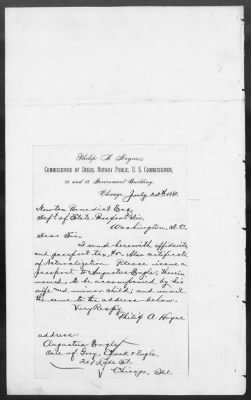 Philip A. Hoyne,
COMMISSIONER OF DEEDS, NOTARY PUBLIC, U. S. COMMISSIONER,
Government Building.
Chicago, July 1881.
Newton Benedict Esq
Dept of State Passport Div.
Washington, D.C.
Dear Sir,
I send herewith affidavits
and passport fee, Also Certificate
of Naturalization. Please issue a
passport to Augustus Engle, therein
named, to be accompanied by his
wife and minor child; and mail
the same to the address below.
Very Respy
Philip A. Hoyne
address:
Augustus Engle
Care of Gray, & Engle,
Lake St.
Chicago, Ill.